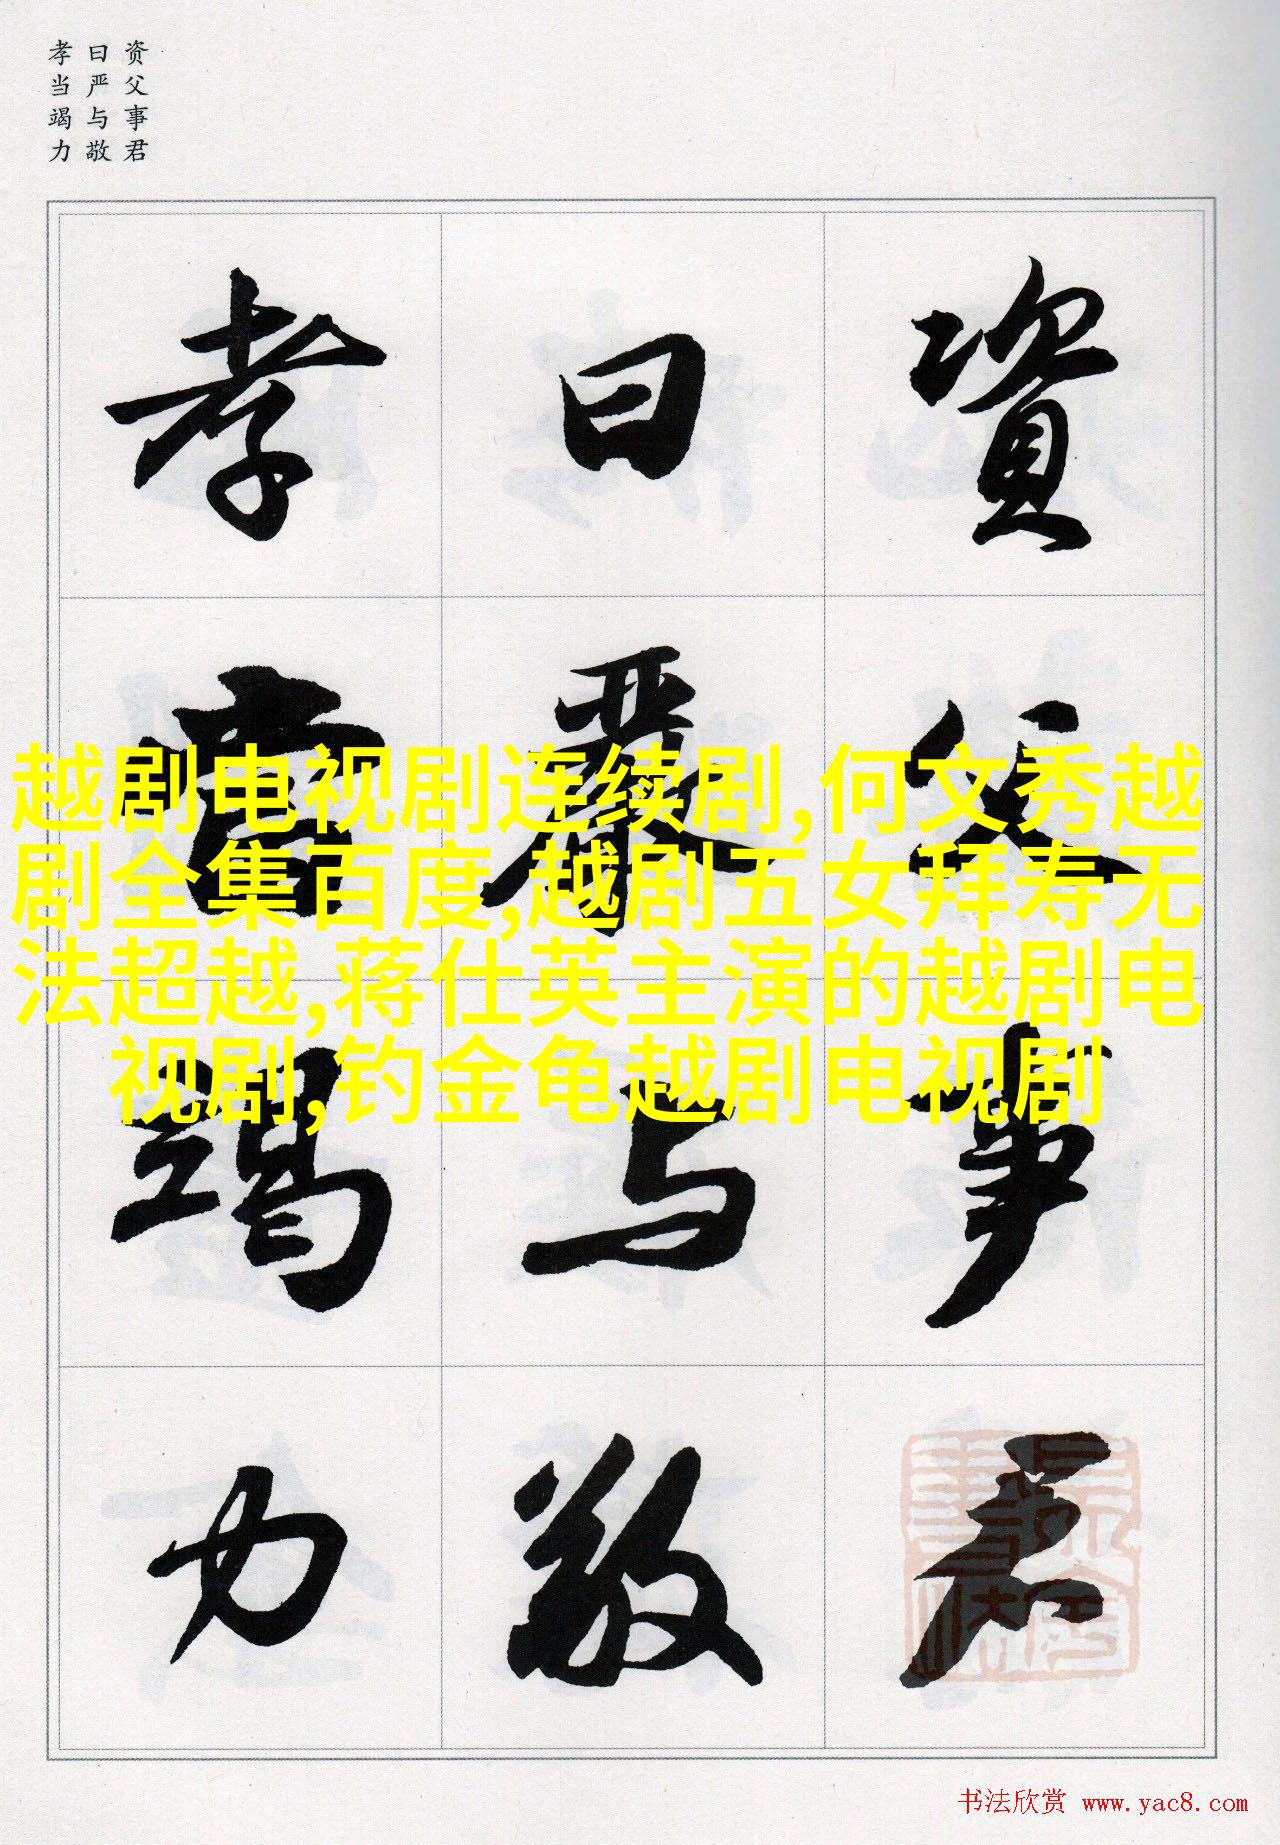 资父事君
曰严与敬
孝当竭力
資父事君
曰嚴与敬
孝當竭力
越剧电视剧连续剧,何文秀越
剧全集百度,越剧五女拜寿无
法超越,蒋仕英主演的越剧电
视剧,钓金龟越剧电视剧
书法欣赏 www.yac8.com